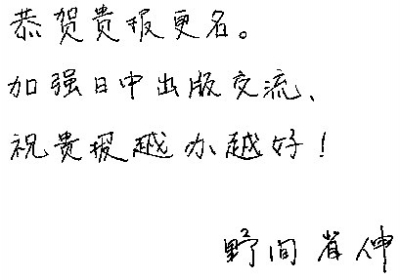 恭贺贵报更名。
加强日中出版交流、
祝贵报越办越好！
野间省伸